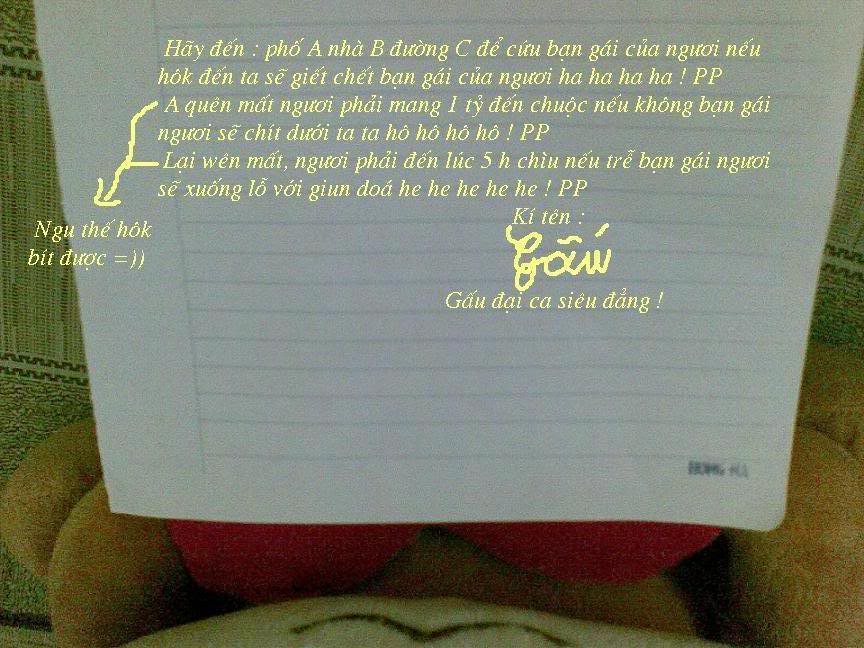 Hãy đến : phố A nhà B đường C để cứu bạn gái của ngươi nếu
hôk đến ta sẽ giết chết bạn gái của ngươi ha ha ha ha ! PP
A quên mất ngươi phải mang 1 tỷ đến chuộc nếu không bạn gái
ngươi sẽ chít dưới ta ta hô hô hô hô ! PP
Lại wên mất, ngươi phải đến lúc 5 h chìu nếu trễ bạn gái ngươi
sẽ xuống lỗ với giun doá he he he he he ! PP
Ngu thế hôk
bít được =))
Kí tên :
Gấu
Gấu đại ca siêu đẳng !